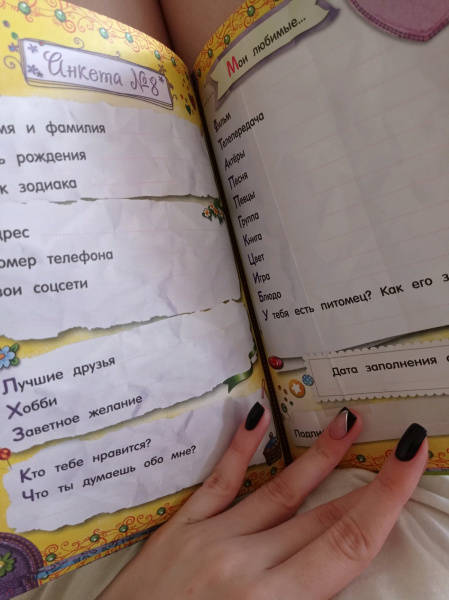 Анкета №8
мя и фамилия
ь рождения
к зодиака
рес
омер телефона
вои соцсети
Лучшие друзья
Хобби
Заветное желание
Кто тебе нравится?
Что ты думаешь обо мне?
Мои любимые...
Фильм
Телепередача
Актёры
Песня
Певцы
Группа
Книга
Цвет
Игра
Блюдо
У тебя есть питомец? Как его з
Дата заполнения
Подпи